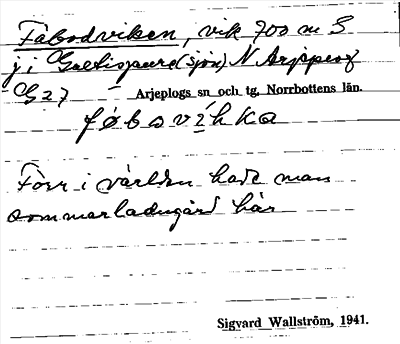 Fäbodviken, vik 700 m S
j i Galtispure (sjön) N Arjeplog
G 27 Arjeplogs sn och tg, Norrbottens län.
fø̀boviḱka
Förr i världen hade man
sommarladugård här
Sigvard Wallström, 1941.